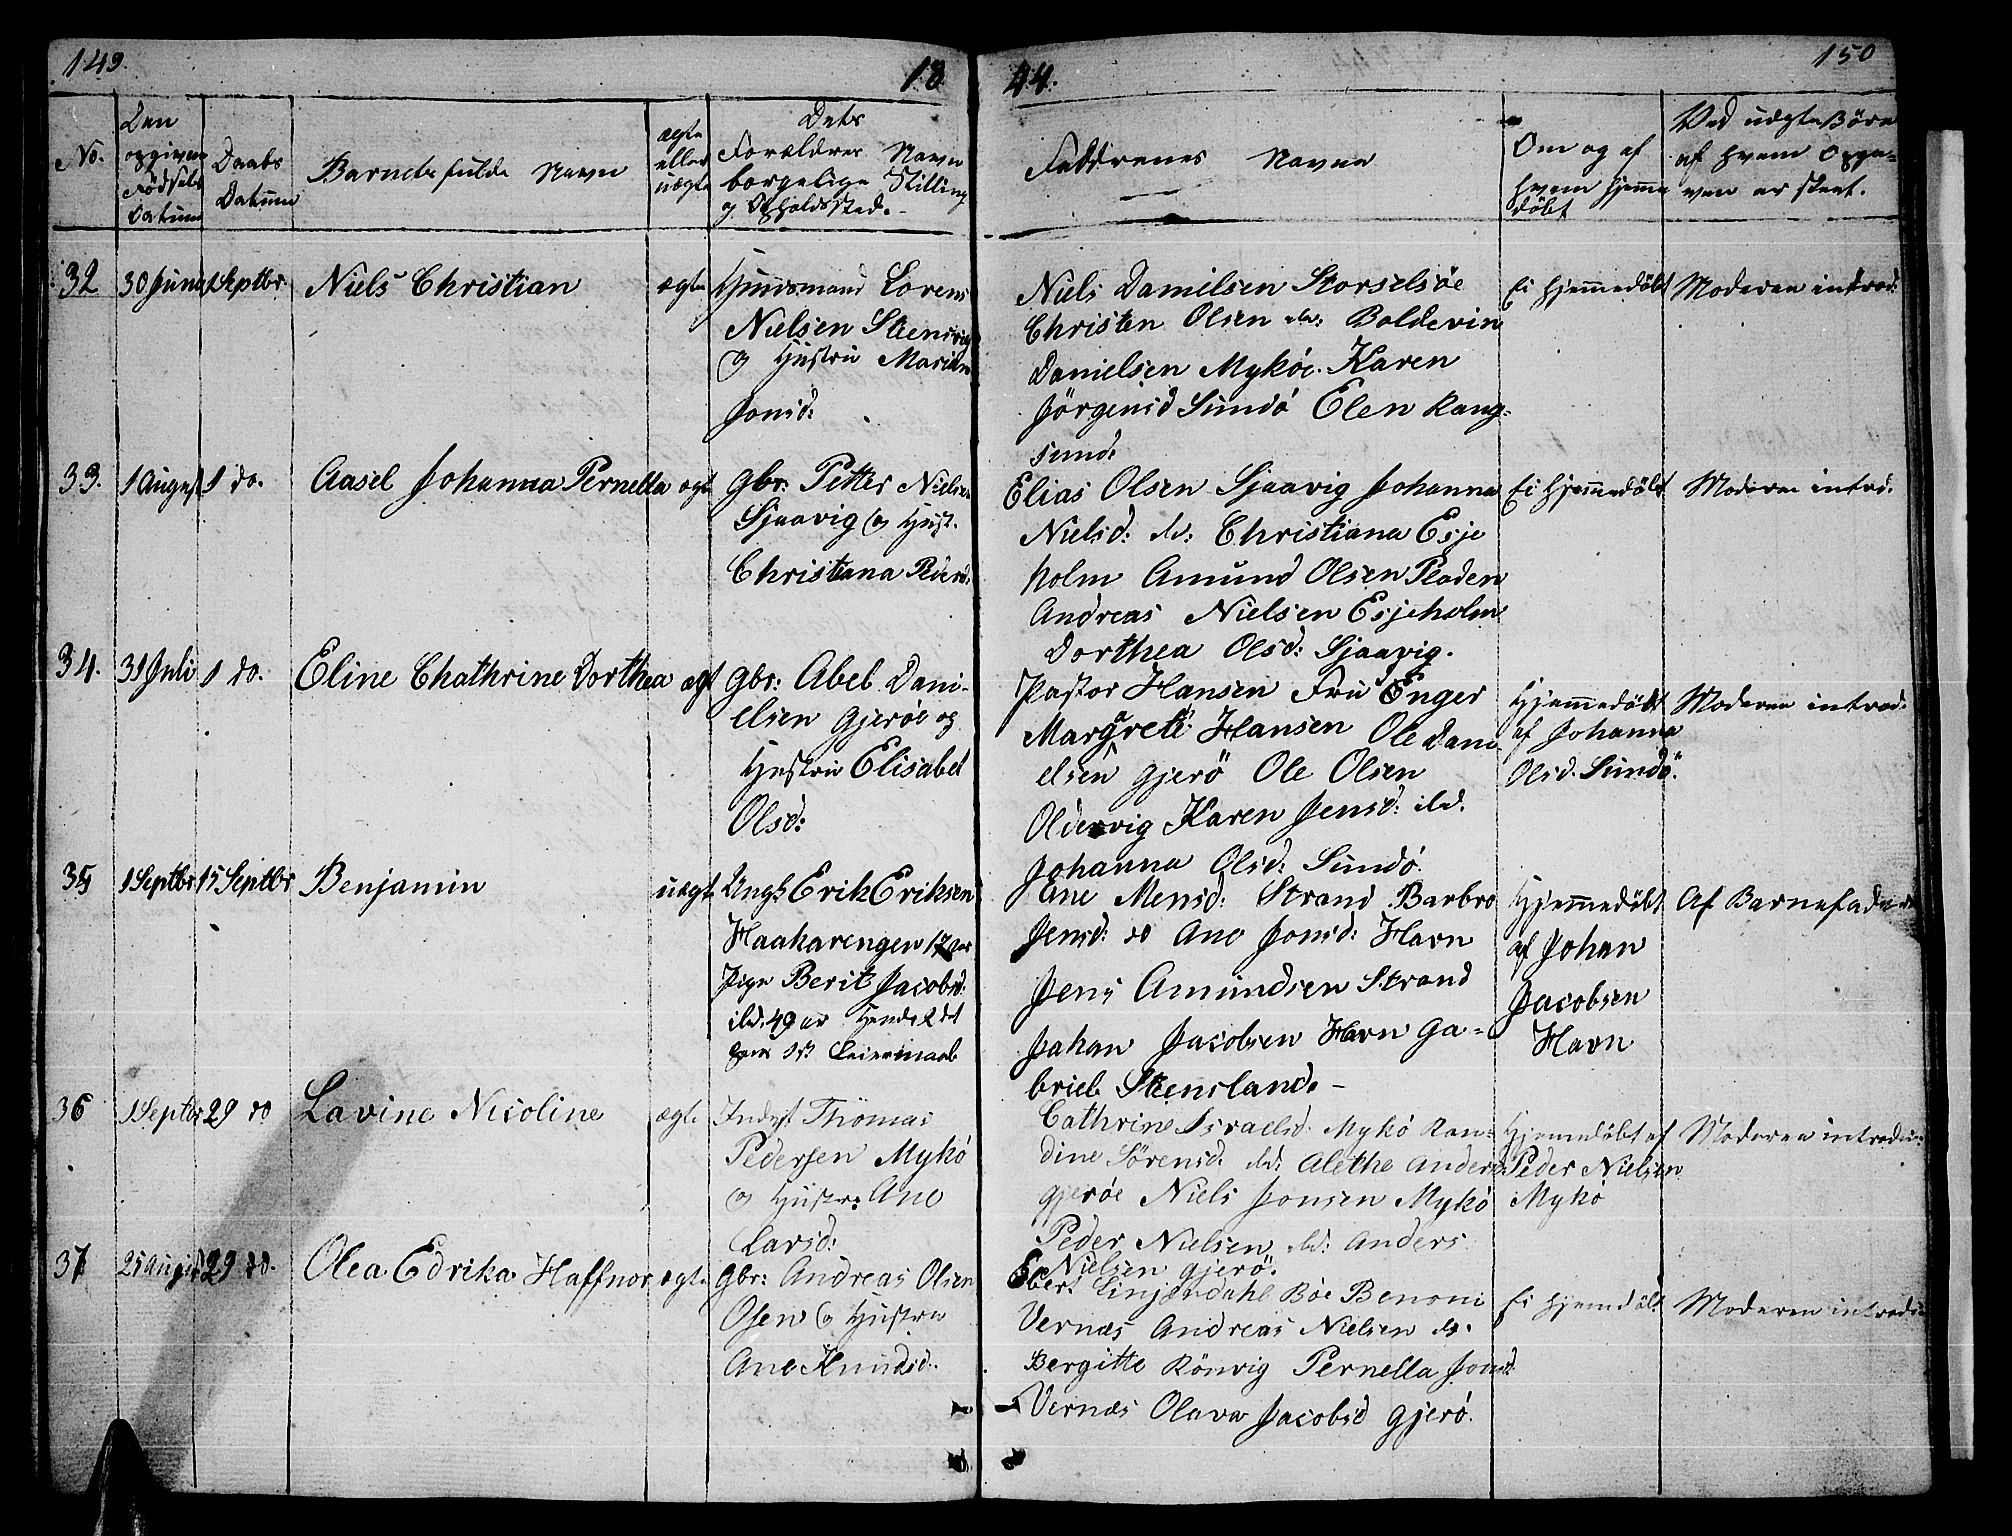 149.
18
44.
150
No.
Den
opgivne
Fødsels
Datum
Daabs
Datum
Barnets fulde Navn
ægte
eller
uægte
Dets
Forældres Navn
borgelige Stilling
og Opholdssted.
Faddrenes Navne
Om og af
hvem hjemme
döbt
Ved uægte Börn
af hvem Opga-
ven er skeet.
32
30 Juni
1 Septbr
Niels Christian
ægte
Huusmand Lorens
Nielsen Stensvig
og Hustru Maria
Jonsd:
Niels Danielsen Storselsöe
Christen Olsen ibd: Boldevin
Danielsen Myköe. Karen
Jörgensd Sundö Elen Rang-
sund.
Ei Hjemmedöbt
Moderen introd:
33.
1 August
1 do.
Aasel Johanna Pernella
ægt
Gbr: Petter Nielsen
Sjaavig og Hust.
Christiana Pedersd.
Elias Olsen Sjaavig Johanna
Nielsd: ibd: Christiana Esje
holm Amund Olsen Pladen
Andreas Nielsen Esjeholm
Dorthea Olsd: Sjaavig.
Ei Hjemmedöbt
Moderen introd.
34.
31 Juli
1 do.
Eline Chathrine Dorthea
ægt
Gbr: Abel Dani-
elsen Gjeröe og
Hustru Elisabet
Olsd:
Pastor Hansen Fru Enger
Margrete Hansen Ole Dani
elsen Gjerö Ole Olsen
Oldervig Karen Jensd: ibd.
Johanna Olsd: Sundö.
Hjemmedöbt
af Johanna
Olsd. Sundö.
Moderen introd.
35
1 Septbr
15 Septbr
Benjamin
uægt
Ungk Erik Eriksen
Haakarengen 17 aar
Pige Berit Jacobsd:
ibd. 49 ar Hendes 2det
hans 1ste Leiermaal
Ane Mensd: Strand Barbro
Jensd: do Ane Jonsd: Havn
Jens Amundsen Strand
Johan Jacobsen Havn Ga-
briel Stensland. -
Hjemmedöbt
af Johan
Jacobsen
Havn
Af Barnefaderen
36
1 Septbr
29 do
Lavine Nicoline
ægte
Inderst Thomas
Pedersen Mykö
og Hustr: Ane
Larsd:
Cathrine Israelsd. Mykö Ran-
dine Sörensd. ibd: Alethe Andersd:
Gjeröe Niels Jonsen Mykö
Peder Nielsen ibd: Anders
Nielsen Gjerö.
Hjemmedöbt af
Peder Nielsen
Mykö
Moderen introdu:
37
25 August
29 do.
Olea Edrika Haffnor
ægte
Gbr: Andreas Olsen
Osen og Hustru
Ane Knudsd.
Ebert Linjendahl Böe Benoni
Vernæs Andreas Nielsen do.
Bergitte Rönvig Pernella Jonsd:
Vernæs Olava Jacobsd Gjerö.
Ei Hjemdöbt
Moderen introdu